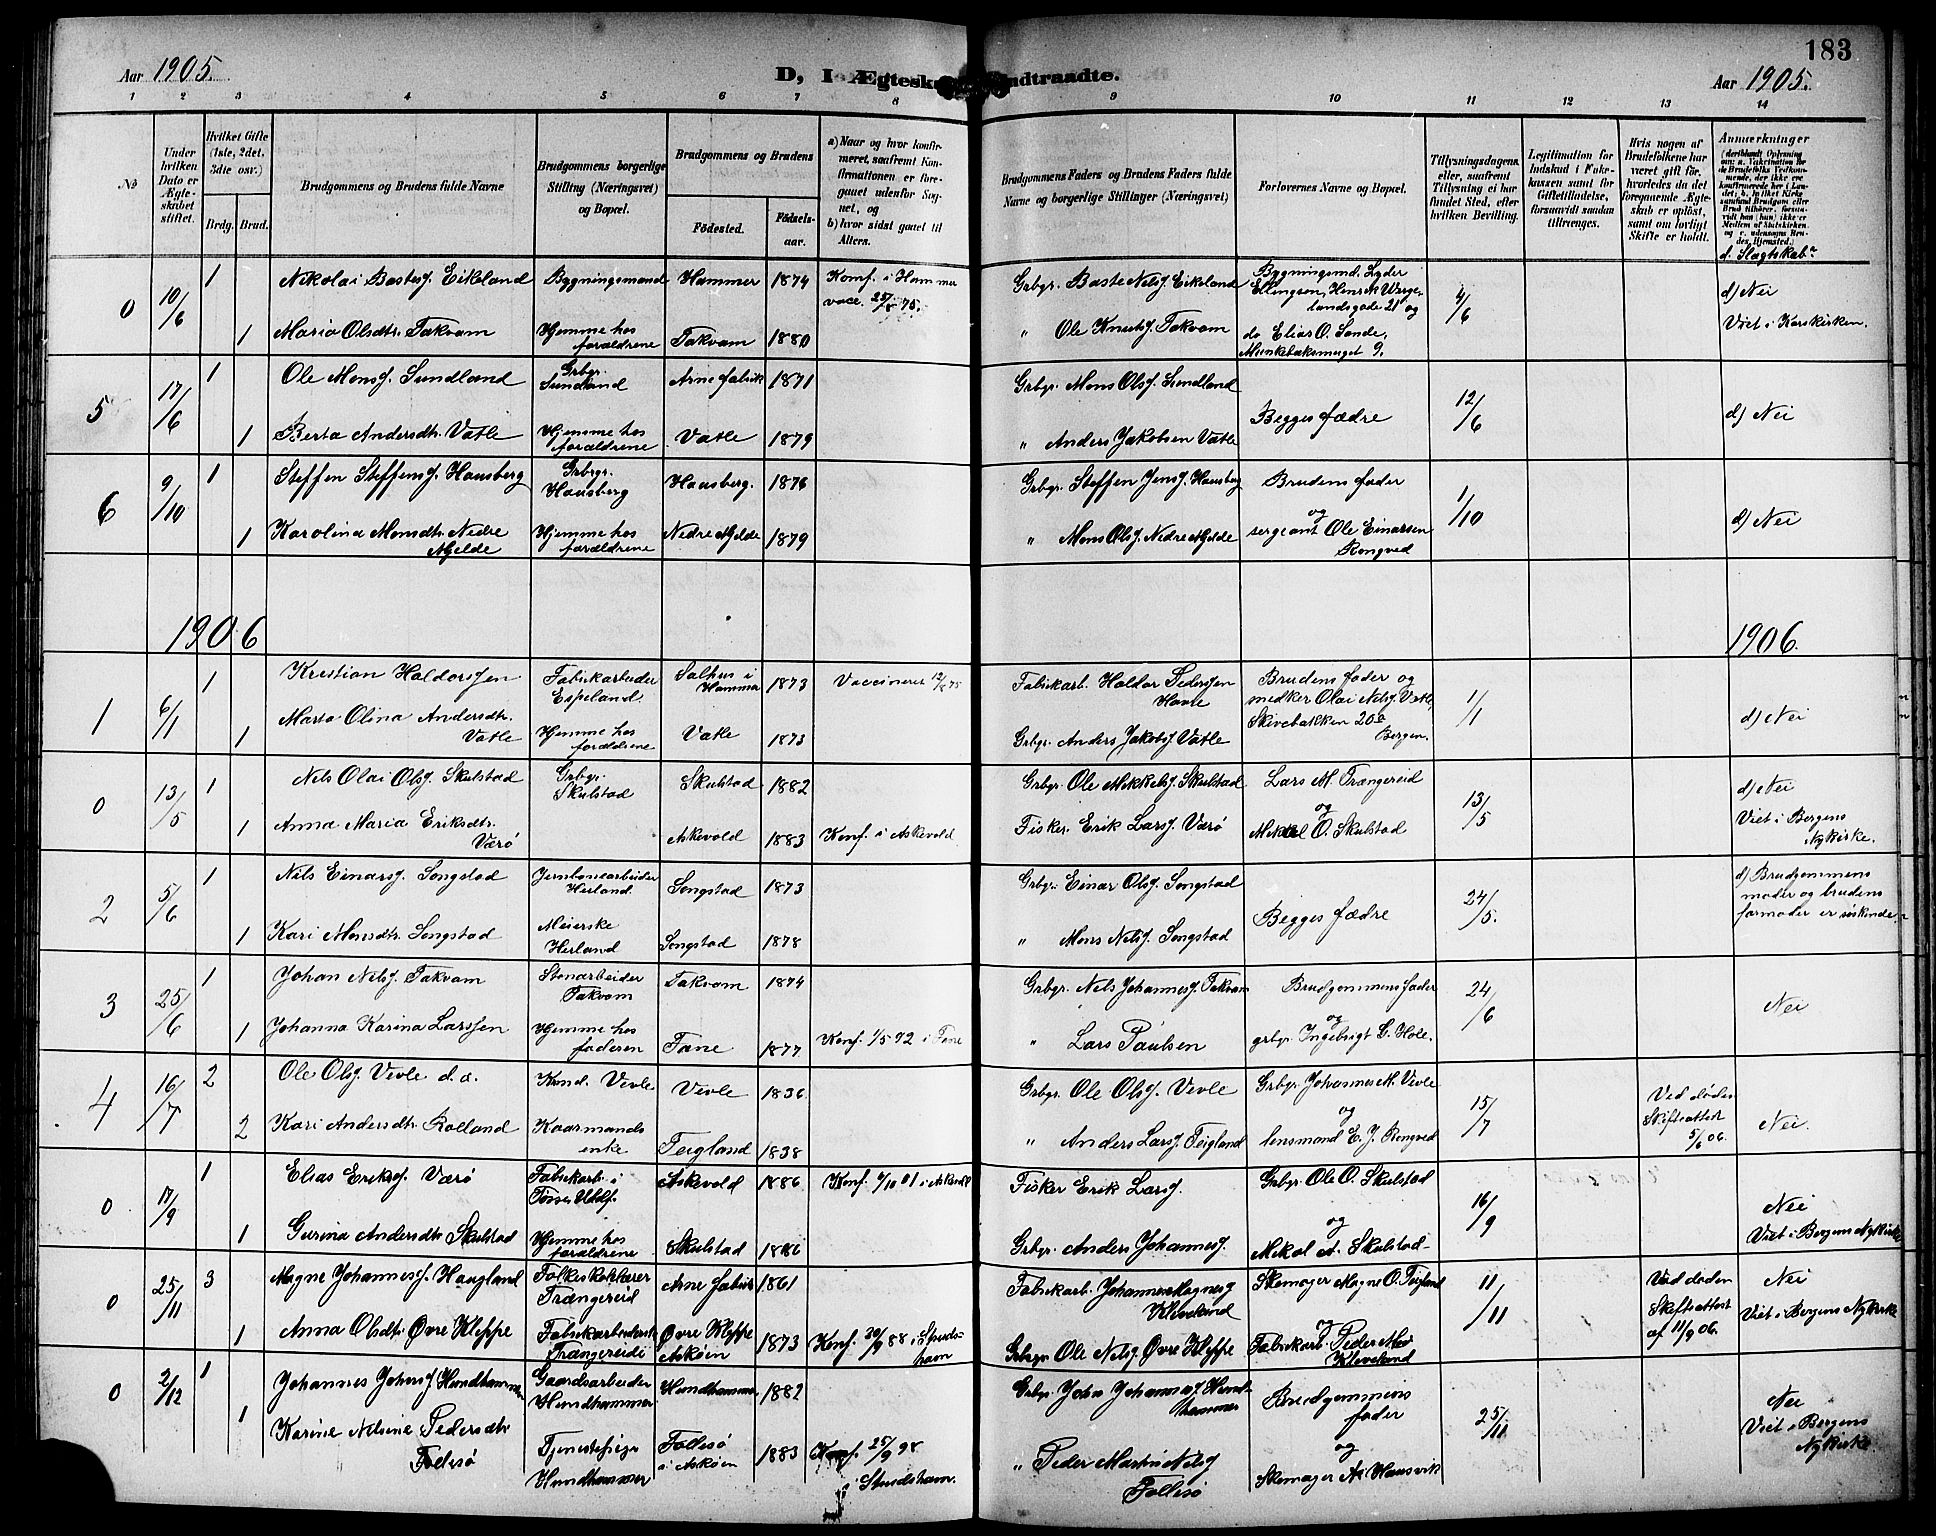 183
Aar 1905.
D, I Ægtesk
ndtraadte.
Aar 1905.
1 2 3 4 5 6 7 8 9 10 11 12 13 14
No
Under hvilken Dato er Ægteskabet stiftet.
Hvilket Gifte (1ste, 2det, 3die osv.)
Brdg. Brud.
Brudgommens og Brudens fulde Navne
Brudgommens borgerlige Stilling (Næringsvei) og Bopæl.
Brudgommens og Brudens
Fødested.
Fødselsaar.
a) Naar og hvor konfirmeret, saafremt Konfirmationen er foregaaet udenfor Sognet, og
b) hvor sidst gaaet til Alters.
Brudgommens Faders og Brudens Faders fulde Navne og borgerlige Stillinger (Næringsvei)
Forlovernes Navne og Bopæl.
Tillysningsdagene, eller, saafremt Tillysning ei har fundet Sted, efter hvilken Bevilling.
Legitimation for Indskud i Enkekassen samt for Giftetilladelse, forsaavidt saadan tiltrænges.
Hvis nogen af Brudefolkene har været gift før, hvorledes da det foregaaende Ægteskab er opløst, samt om lovligt Skifte er holdt.
Anmerkninger
d. Slagtskab?
0 10/6 1 Nikolai Bastesf. Eikeland Bygningsmand Hammer 1874 Konf. i Hammer vacc. 25/8 75. Grbgr. Baste Nilsf. Eikeland Bygningsmd. Lyder Ellingsen, Henrik Wergelandsgade 21 og 4/6 d) Nei
1 Maria Olsdtr. Takvam Hjemme hos forældrene Takvam 1880 " Ole Knutsf. Takvam do Elias O. Sande, Munkebæksmuget 9. Viet i Korskirken.
5 17/6 1 Ole Monsf. Sundland Grbgr. Sundland Arne fabrik 1871 Grbgr. Mons Olsf. Sundland Begges fædre 12/6 d) Nei
1 Berta Andersdtr. Vatle Hjemme hos forældrene Vatle 1879 " Anders Jakobsen Vatle
6 9/10 1 Steffen Steffensf. Hausberg Grbgr. Hausberg Hausberg. 1876 Grbgr. Steffen Jensf. Hausberg Brudens fader og 1/10 d) Nei
1 Karolina Monsdtr. Nedre Mjelde Hjemme hos forældrene Nedre Mjelde 1879 " Mons Olsf. Nedre Mjelde sergeant Ole Einarsen Rongved
1906 1906.
1 6/1 1 Kristian Haldorssen Fabrikarbeider Espeland. Salhus i Hammer 1873 Vaccineret 12/8 75 Fabrikarb. Haldor Pedersen Havle Brudens fader og 1/1 d) Nei
1 Marta Olina Andersdtr. Vatle Hjemme hos forældrene Vatle 1873 Grbgr. Anders Jakobsf. Vatle snedker Olai Nilsf. Vatle, Skivebakken 20a Bergen.
0 13/5 1 Nils Olai Olsf. Skulstad Grbgr. Skulstad Skulstad 1882 Grbgr. Ole Mikkelsf. Skulstad Lars M. Trængereid og 13/5 d) Nei
1 Anna Maria Eriksdtr. Værø Askevold 1883 Konf. i Askevold Fisker Erik Larsf. Værø Mikkel O. Skulstad Viet i Bergens Nykirke.
2 5/6 1 Nils Einarsf. Songstad Jernbanearbeider Herland. Songstad 1873 Grbgr. Einar Olsf. Songstad Begges fædre 24/5. d) Brudgommens moder og brudens formoder er søskinde
1 Kari Monsdtr. Songstad Meierske Herland Songstad 1878 " Mons Nilsf. Songstad
3 25/6 1 Johan Nilsf. Takvam Stenarbeider Takvam Takvam 1874 Grbgr. Nils Johannesf. Takvam Brudgommens fader og 24/6 Nei
1 Johanna Karina Larssen Hjemme hos faderen Fane 1877 Konf. 1/5 92 i Fane " Lars Paulsen grbgr. Ingebrigt L. Hole.
4 16/7 2 Ole Olsf. Vevle d.a. Kaard. Vevle Vevle 1836 Grbgr. Ole Olsf. Vevle Grbgr. Johannes M. Vevle og 15/7 Ved døden Skifteattest 5/6 06. Nei.
2 Kari Andersdtr. Rolland Kaarmands enke Teigland 1838 " Anders Larsf. Teigland lensmand E. J. Rongved
0 17/9 1 Elias Eriksf. Værø Fabrikarb. i Tøsse Udlf. Askevold 1886 Konf. 6/10 01 i Askevold Fisker Erik Larsf. Grbgr. Ole O. Skulstad og 16/9 Nei
1 Gurina Andersdtr. Skulstad Hjemme hos forældrene Skulstad 1886 Grbgr. Anders Johannesf. Mikal A. Skulstad Viet i Bergens Nykirke
0 25/11 3 Magne Johannesf. Haugland Folkeskolelærer Trængereid Arne fabrik 1861 Fabrikarb. Johannes Magnesf. Kleveland Skomager Magne O. Teigland og 11/11 Ved døden Skifteattest af 11/9 06. Nei
1 Anna Olsdtr. Øvre Kleppe Fabrikarbeiderske Trængereid Øvre Kleppe Askøen 1873 Konf. 30/9 88 i Strudshavn Grbgr. Ole Nilsf. Øvre Kleppe Fabrikarb. Peder Kleveland Viet i Bergens Nykirke
0 2/12 1 Johannes Johnsf. Hundhammer Gaardsarbeider Hundhammer Hundhammer 1882 Grbgr. John Johannesf. Hundhammer Brudgommens fader og 25/11 Nei
1 Karine Nilsine Pedersdtr. Follesø Tjenestepige Hundhammer Follesø i Askøen 1883 Konf. 25/9 98 i Strudshavn. " Peder Martin Nilsf. Follesø Skomager A. Hausvik Viet i Bergens Nykirke